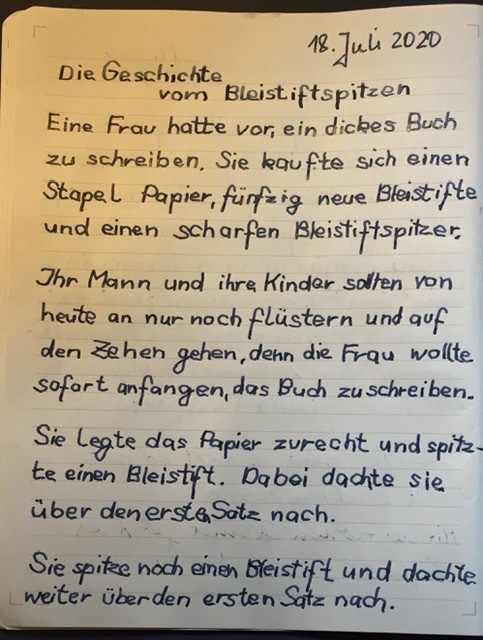 18. Juli 2020
Die Geschichte
vom Bleistiftspitzen
Eine Frau hatte vor, ein dickes Buch
zu schreiben. Sie kaufte sich einen
Stapel Papier, fünfzig neue Bleistifte
und einen scharfen Bleistiftspitzer.
Ihr Mann und ihre Kinder sollten von
heute an nur noch flüstern und auf
den Zehen gehen, denn die Frau wollte
sofort anfangen, das Buch zu schreiben.
Sie legte das Papier zurecht und spitz-
te einen Bleistift. Dabei dachte sie
über den erste Satz nach.
Sie spitze noch einen Bleistift und dachte
weiter über den ersten Satz nach.